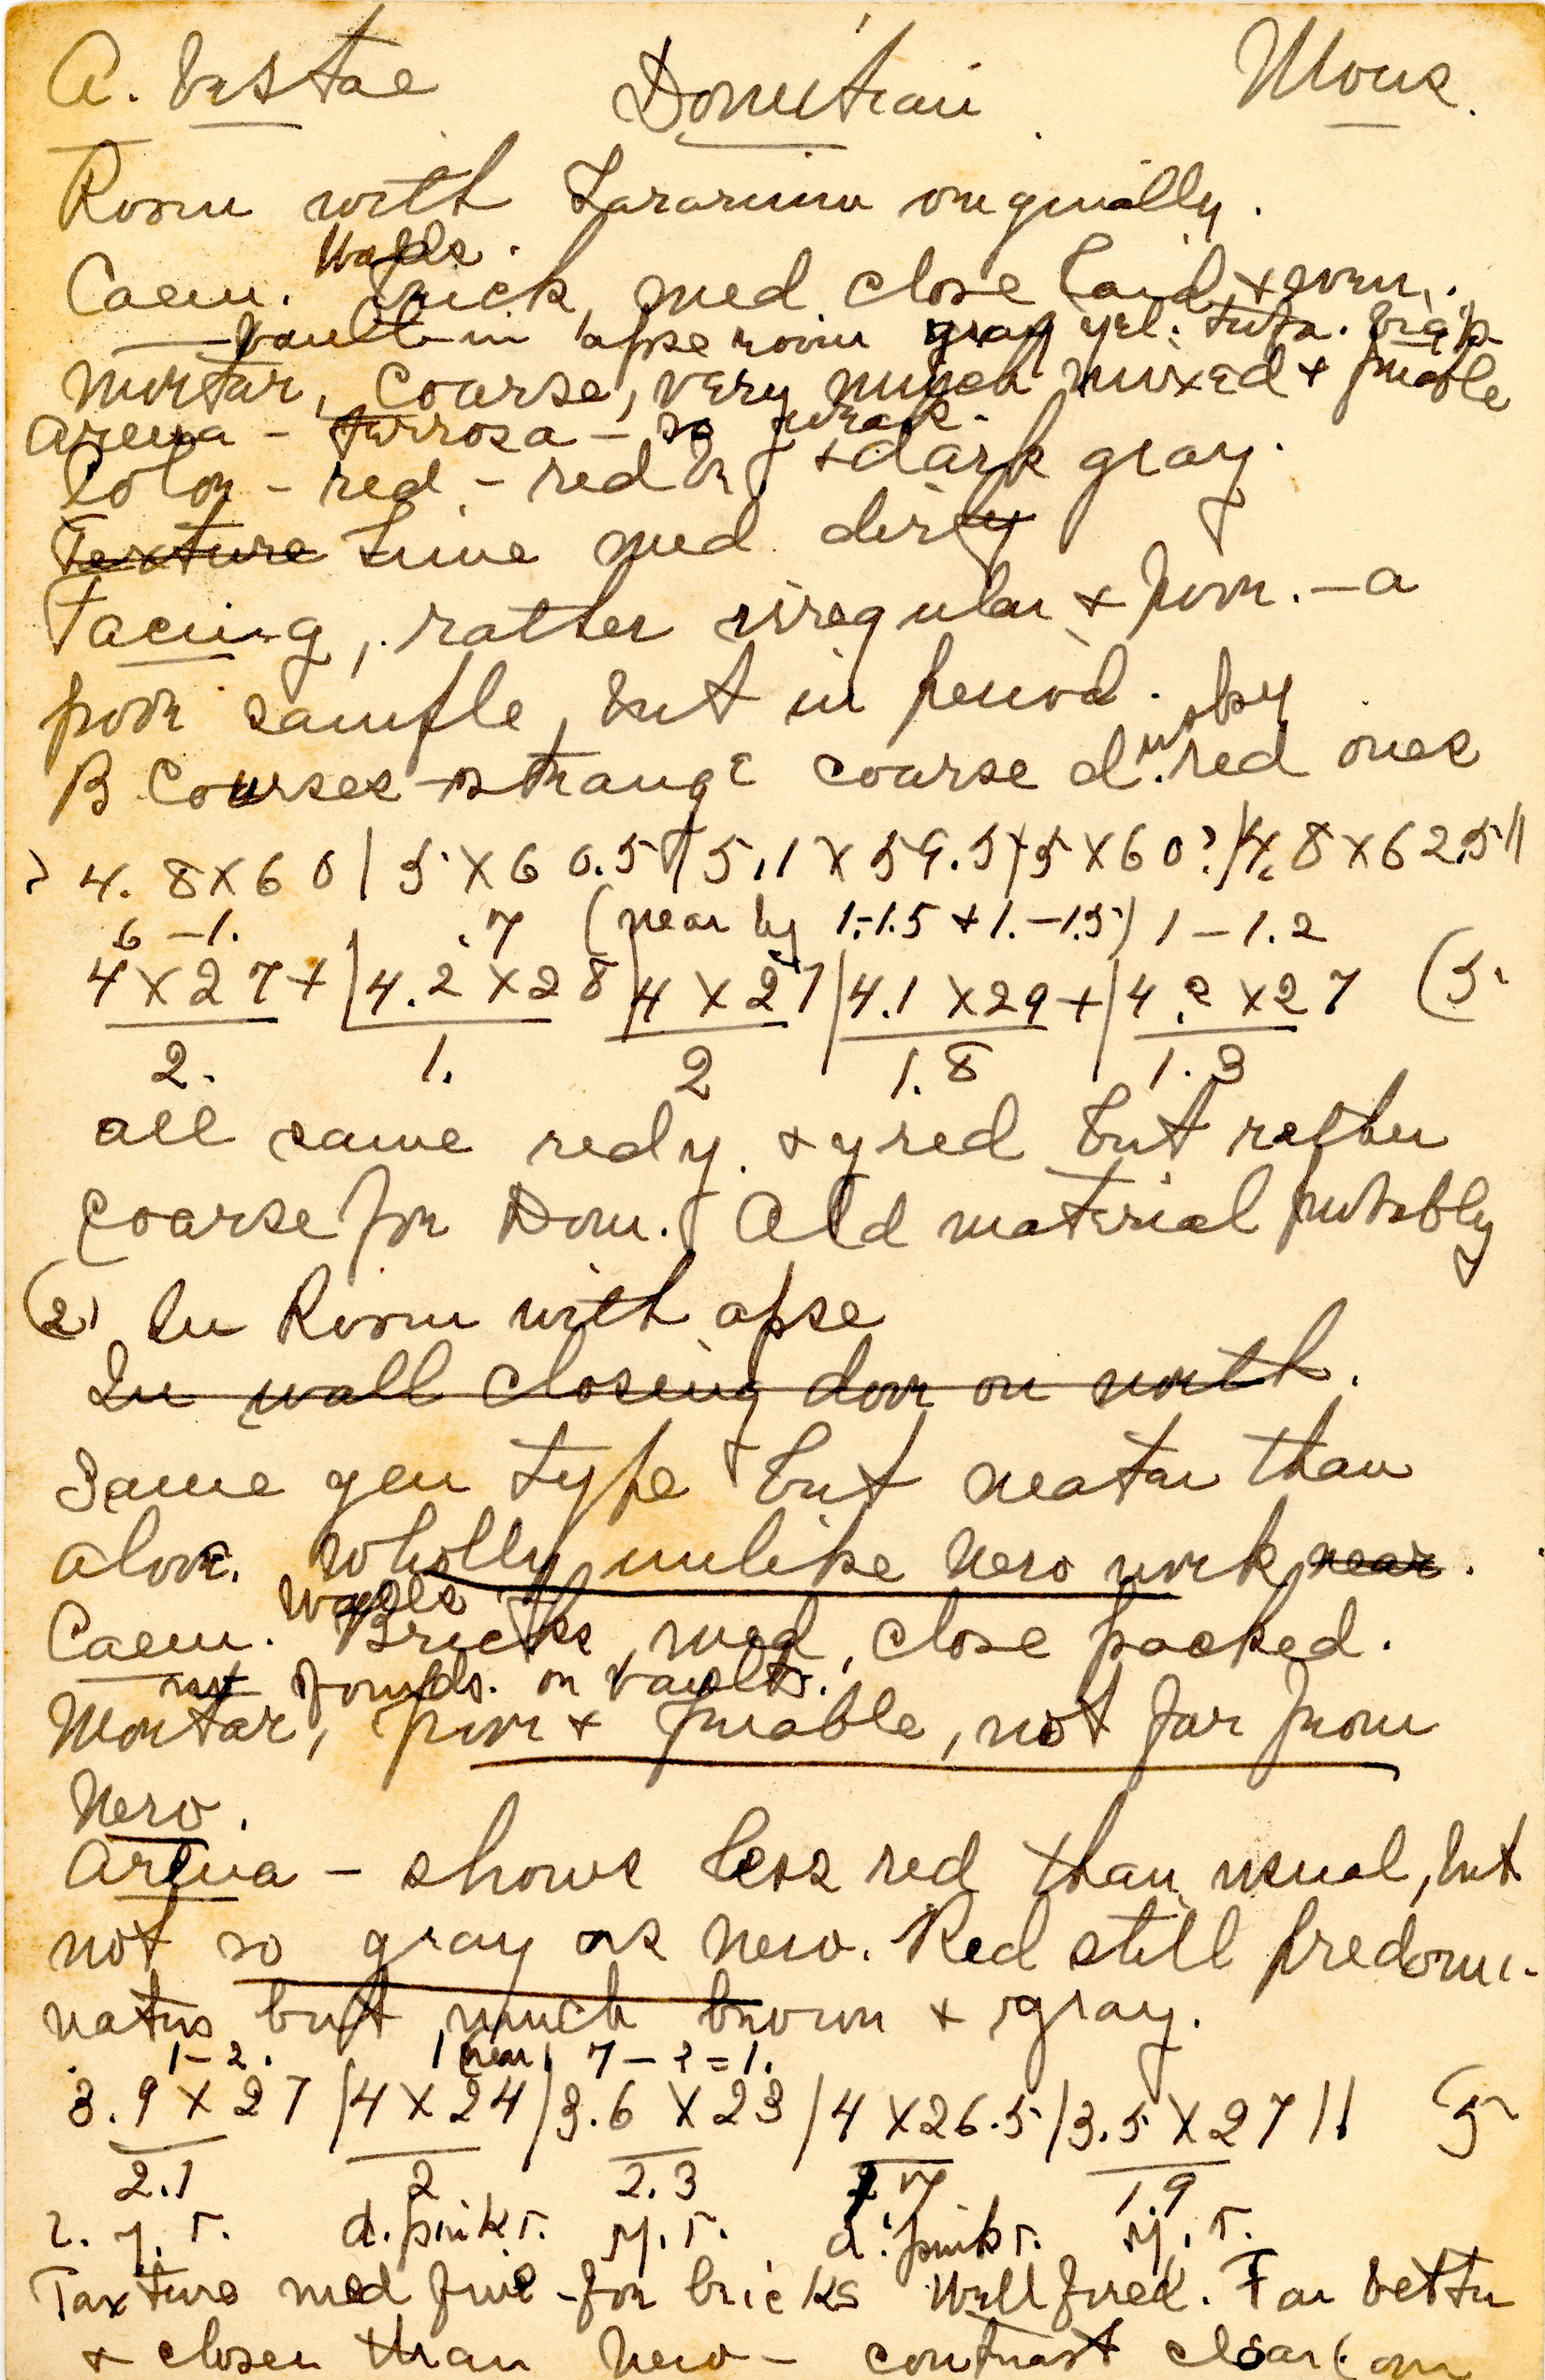 A. Vestae Domitian Mons.
Room with Lararium originally.
Walls.
Caem. Brick, med close laid + even.
vault in apse room gray yel. tufa.
Mortar, Coarse, very much mixed + friable
Arena - terrosa - so weak.
Color - red - red br + dark gray.
Texture Lime med dirty
Facing, rather irregular + poor. - a
poor sample, but in period.
B Courses - strange coarse d. red ones
? 4.8 X 60 | 5 X 60.5 | 5.1 X 59.5 | 5 X 60? | 4.8 X 62.5 ||
.6 - 1. .7 (near by 1.-1.5 + 1.-1.5) 1 - 1.2
4 X 27 + | 4.2 X 28 | 4 X 27 | 4.1 X 29 + | 4.2 X 27 (5.
2. 1. 2 1.8 1.3
all same red y. + y red but rather
coarse for Dom. Old material probably
(2) In Room with apse
In wall closing door on north.
Same gen type but neater than
above. Wholly unlike Nero work near.
Walls
Caem. Bricks, med, close packed.
not founds. on vaults.
Mortar, poor + friable, not far from
Nero.
Arena - shows less red than usual, but
not so gray as Nero. Red still predomi-
nates but much brown + gray.
1-2. 1 (near) 7 - ? = 1.
3.9 X 27 | 4 X 24 | 3.6 X 23 | 4 X 26.5 | 3.5 X 27 || (5
2.1 2 2.3 1.9
y. r. d. pink r. y. r. d. pink r. y. r.
Texture med fine - for bricks Well fired. Far better
+ closer than Nero - contrast clear